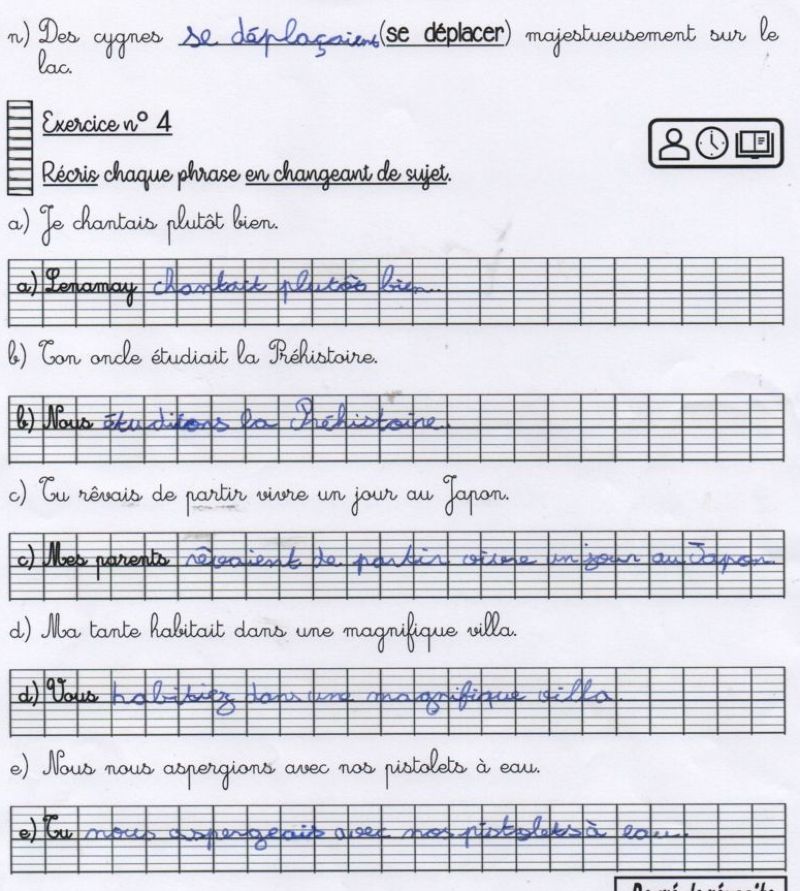 n) Des cygnes se déplaçaient (se déplacer) majestueusement sur le
lac.
Exercice n° 4
Récris chaque phrase en changeant de sujet.
a) Je chantais plutôt bien.
a) Lenamay chantait plutôt bien.
b) Ton oncle étudiait la Préhistoire.
b) Nous étudiions la Préhistoire.
c) Tu rêvais de partir vivre un jour au Japon.
c) Mes parents rêvaient de partir vivre un jour au Japon.
d) Ma tante habitait dans une magnifique villa.
d) Vous habitiez dans une magnifique villa.
e) Nous nous aspergions avec nos pistolets à eau.
e) Tu nous aspergeais avec nos pistolets à eau.